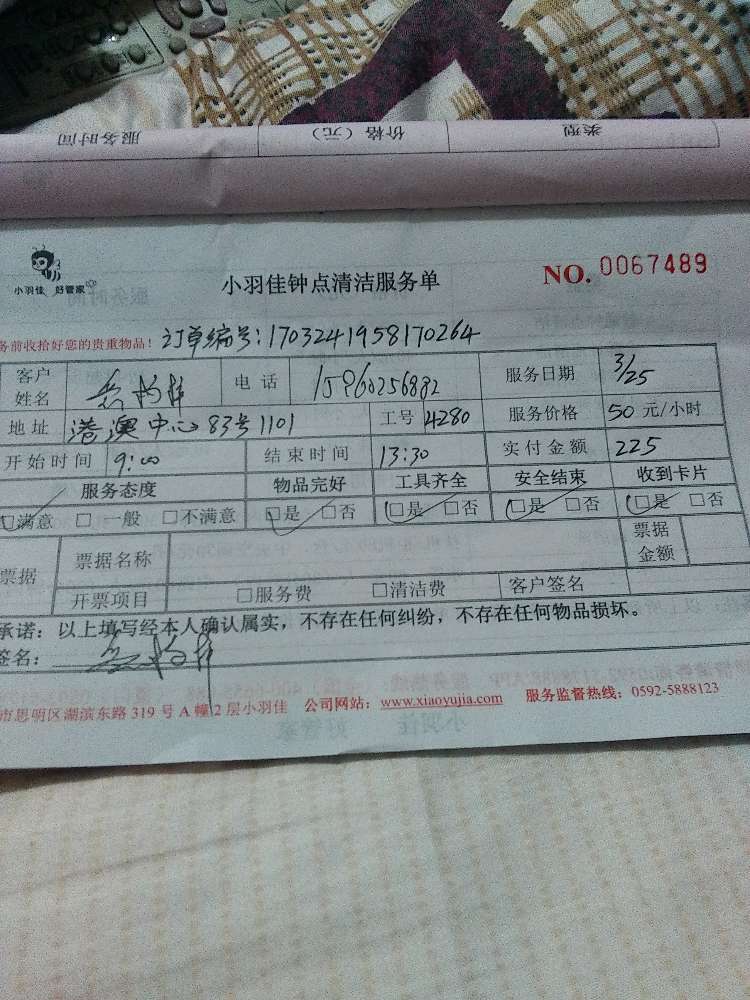 服务时间 价格（元） 类型
小羽佳 好管家
小羽佳钟点清洁服务单
NO. 0067489
务前收拾好您的贵重物品！ 订单编号:1703241958170264
客户姓名 电话 15960256882 服务日期 3/25
地址 港澳中心83号1101 工号 4280 服务价格 50 元/小时
开始时间 9:00 结束时间 13:30 实付金额 225
服务态度 物品完好 工具齐全 安全结束 收到卡片
□满意 □一般 □不满意 □是 □否 □是 □否 □是 □否 □是 □否
票据 票据名称 票据金额
开票项目 □服务费 □清洁费 客户签名
承诺：以上填写经本人确认属实，不存在任何纠纷，不存在任何物品损坏。
签名：
市思明区湖滨东路 319 号 A 幢 2 层小羽佳 公司网站：www.xiaoyujia.com 服务监督热线：0592-5888123